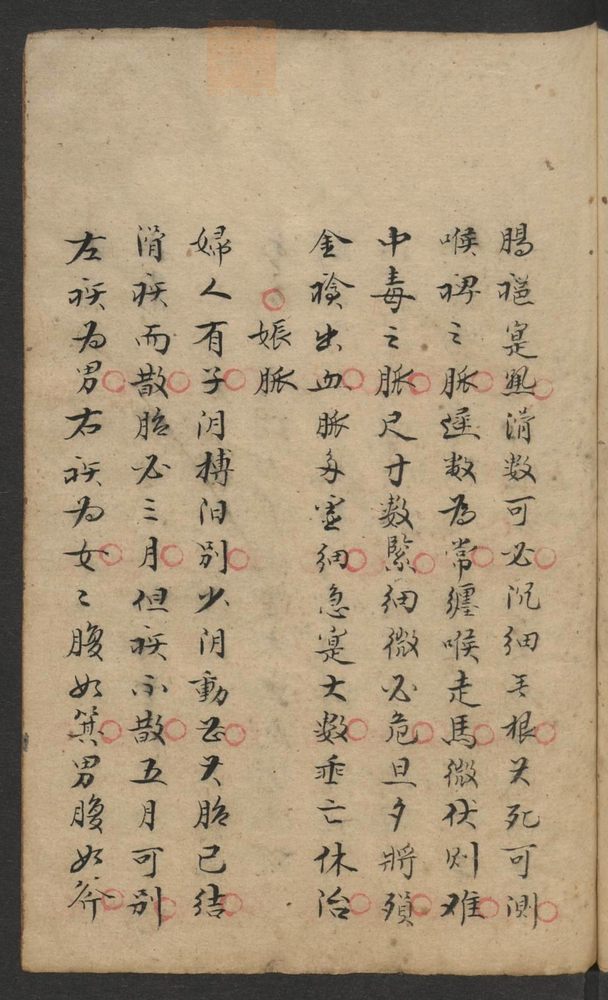 腸痈寔熱滑数可必沉細无根其死可測
喉痹之脈遲数为常纏喉走馬微伏则难
中毒之脈尺寸数緊細微必危旦夕將殞
金瘡出血脈多虛細急寔大数垂亡休治
娠脈
婦人有子阴搏阳别少阴動甚其胎已結
滑疾而散胎必三月但疾不散五月可别
左疾为男右疾为女〻腹如箕男腹如斧